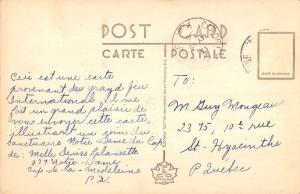 POST CARD
CARTE POSTALE
Ceci est une carte
provenant du grand jeu
International. Il me
fait un grand plaisir de
vous envoyer cette carte,
illustrant un coin du
Sanctuaire Notre Dame du Cap
de: Melle Denise Lalancette
Notre-Dame
Cap-de-la-Madeleine
P.Q.
TO:
M. Guy Mongeau
2375, 10e rue
St-Hyacinthe
P. Québec